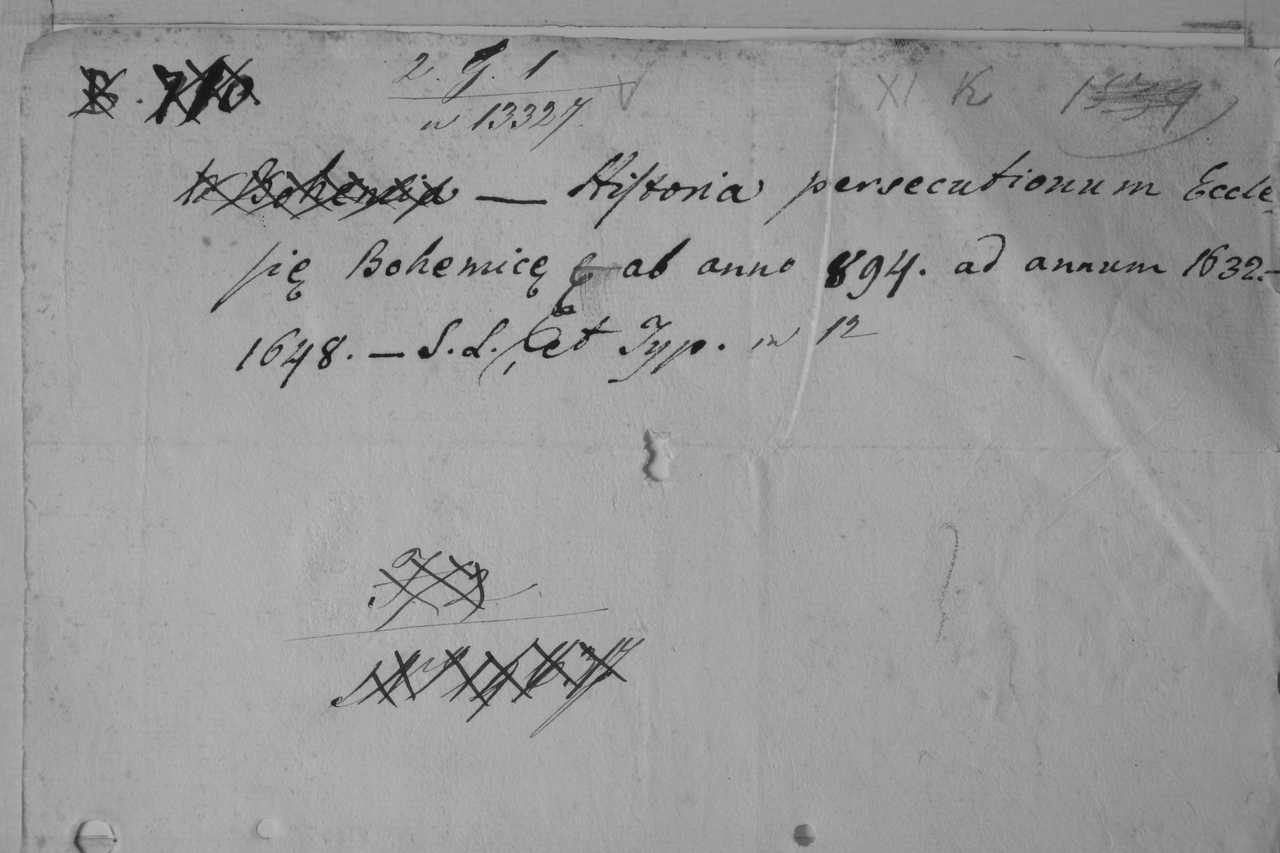 B. 710
2. G. 1
XI K
n 13327.
Bohemia — Historia persecutionum Eccle-
się Bohemicę ab anno 894. ad annum 1632.-
1648. — S. L. Et Typ. in 12